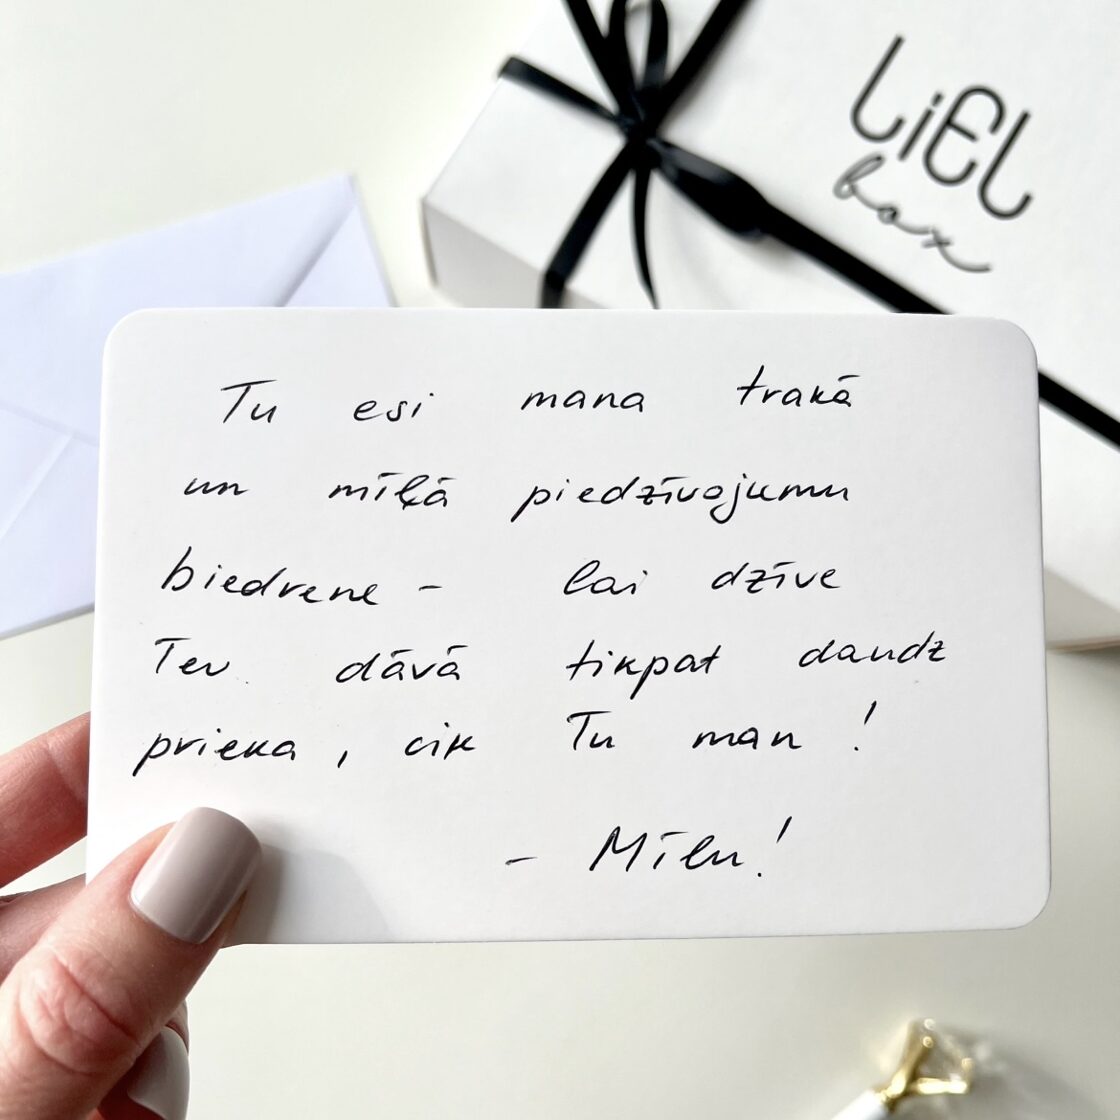 LiEL
box
Tu esi mana trakā
un mīļā piedzīvojumu
biedrene - lai dzīve
Tev dāvā tikpat daudz
prieka, cik Tu man!
- Mīlu!